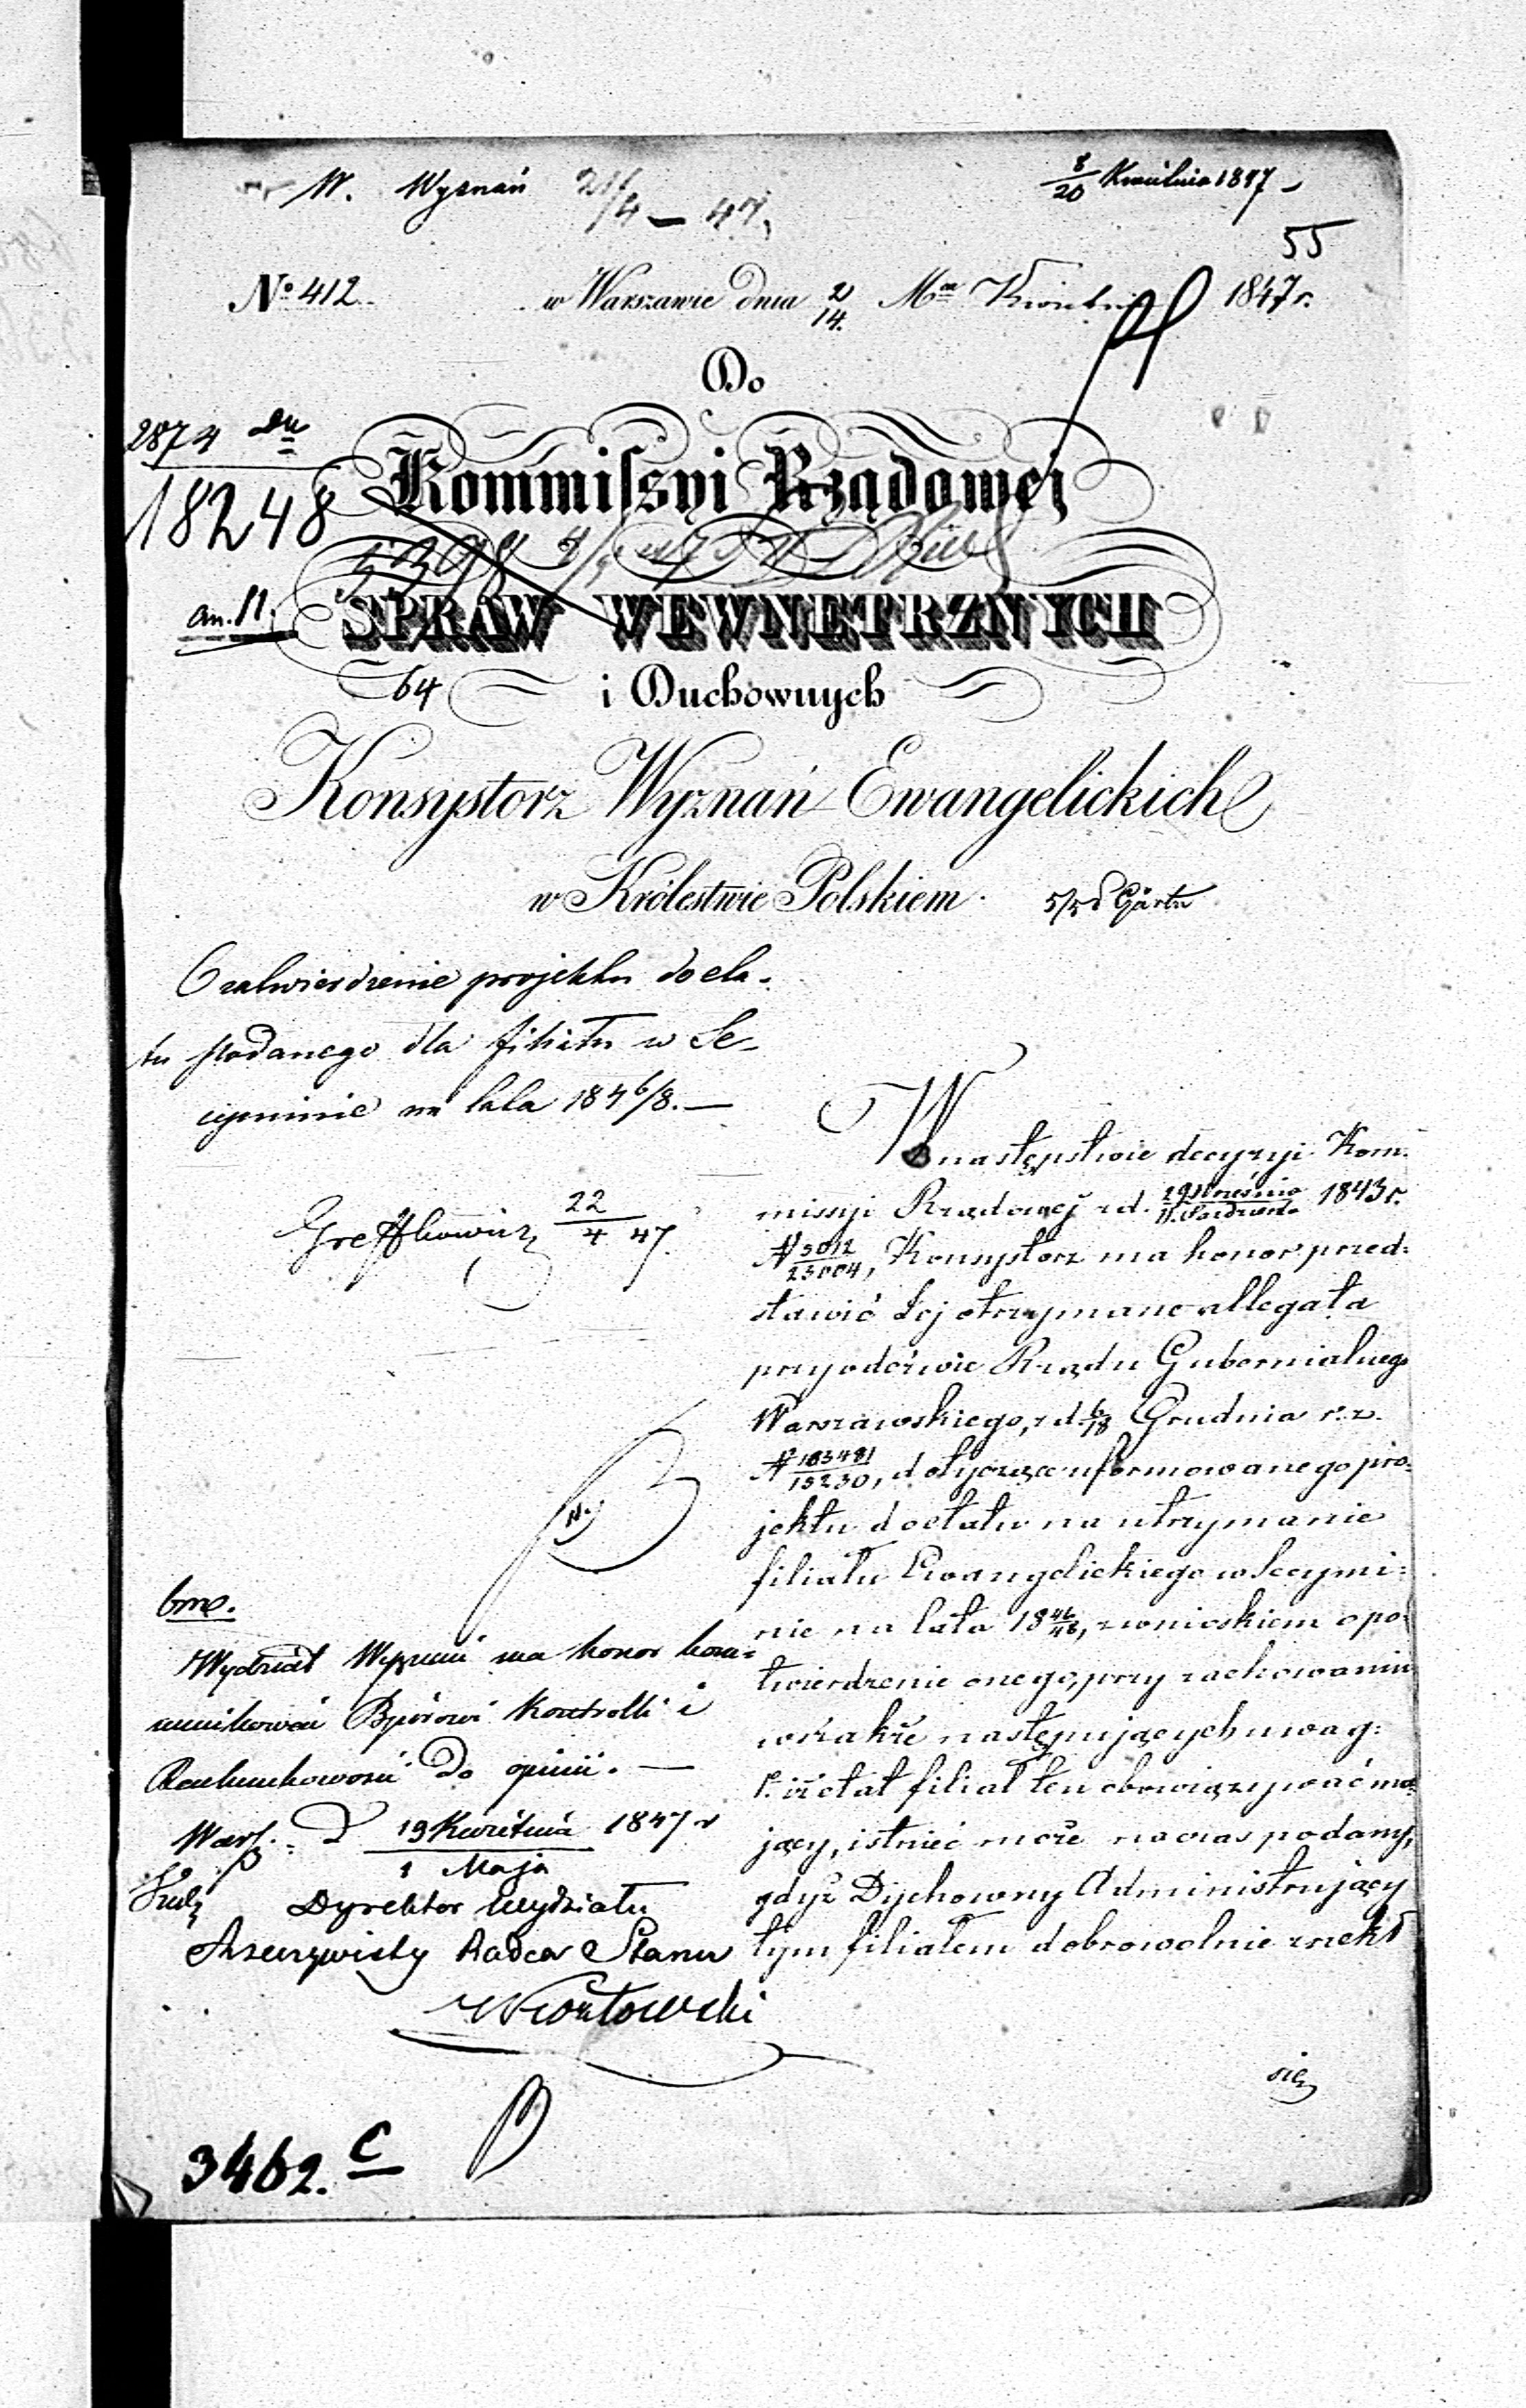 W. Wyznań 21/4 – 47
8/20 Kwietnia 1847
55
No 412. w Warszawie dnia 2/14. Mca Kwietnia 1847 r.
Do
2874
18248
Kommissyi Rządowej
an. 11.
SPRAW WEWNĘTRZNYCH
64
i Duchownych
Konsystorz Wyznań Ewangelickich
w Królestwie Polskiem.
O zatwierdzenie projektu do eta-
tu podanego dla filiału w Se-
cyminie na lata 1846/8. —
Greffkowicz 22/4 47.
W następstwie decyzyi Kom-
missyi Rządowej z d. 29 Września/11. Października 1843 r.
N 5012/23004, Konsystorz ma honor przed-
stawić Jej otrzymane allegata
przy odezwie Rządu Gubernialnego
Warszawskiego, z d. 6/18 Grudnia r. z.
N 183481/15230, dotyczące uformowanego pro-
jektu do etatu na utrzymanie
filiału Ewangelickiego w Secymi-
nie na lata 1846/48, z wnioskiem o po-
twierdzenie onego, przy zachowaniu
wszakże następujących uwag:
1o iż etat filiał ten obowiązywać ma-
jący, istnieć może na czas podany,
gdyż Duchowny Administrujący
tym filiałem dobrowolnie zrzekł
się
bmo.
Wydział Wyznań ma honor kom-
munikować Biórowi Kontrolli i
Rachunkowości do opinii. —
Warsz. d 19 Kwietnia/1 Maja 1847 r
Dyrektor Wydziału
Rzeczywisty Radca Stanu
Kozłowski
3462. C